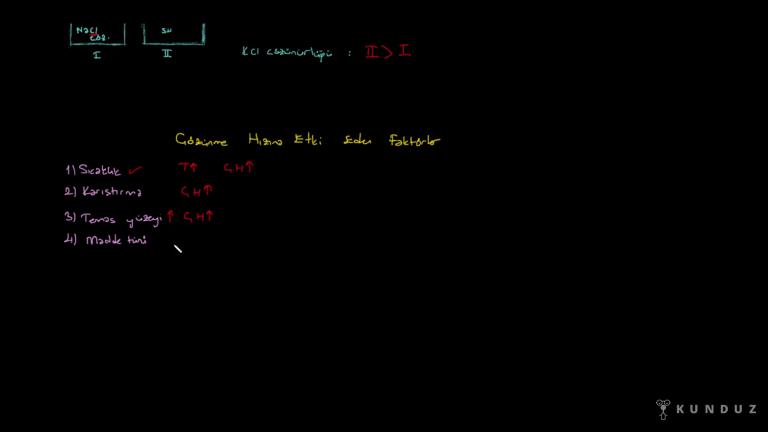 NaCl
çöz.
I
su
II
KCl çözünürlüğü : II > I
Çözünme Hızına Etki Eden Faktörler
1) Sıcaklık ✓ T↑ Ç.H↑
2) Karıştırma Ç.H↑
3) Temas yüzeyi ↑ Ç.H↑
4) Madde türü
KUNDUZ